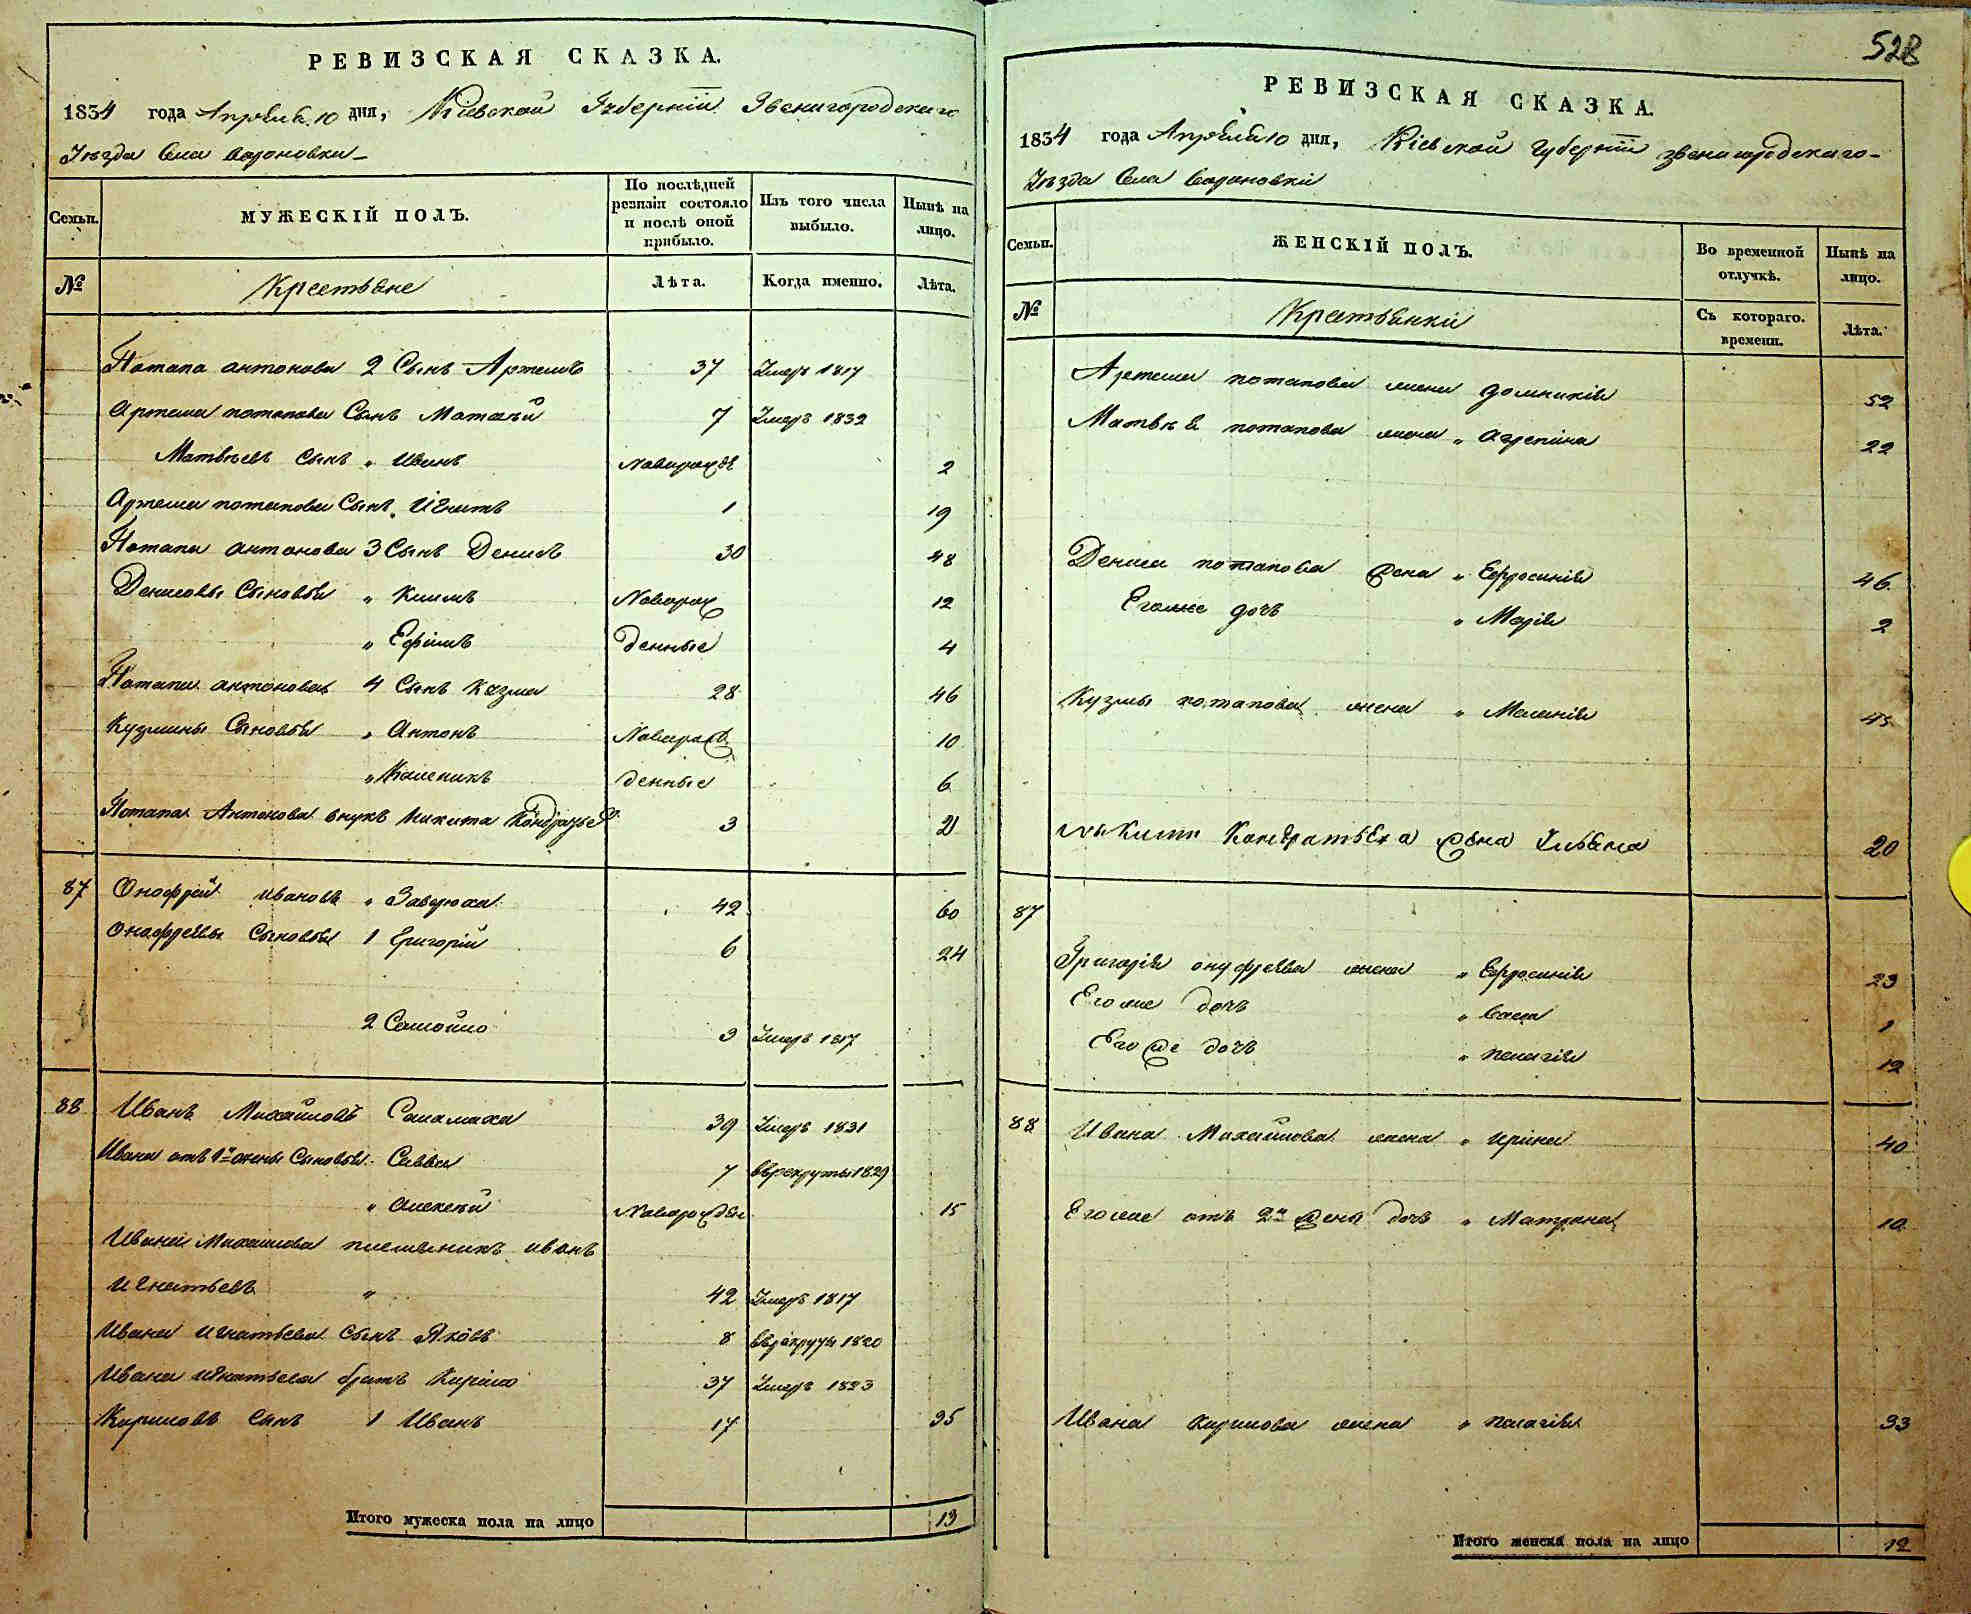 РЕВИЗСКАЯ СКАЗКА.
1834 года Апрѣля 10 дня, Кіевской Губерніи Звенигородскаго
Уѣзда Села
МУЖЕСКІЙ ПОЛЪ.
Семьи.
По послѣдней ревизіи состояло и послѣ оной прибыло.
Изъ того числа выбыло.
Нынѣ на лицо.
№ Крестьяне Лѣта. Когда именно. Лѣта.
Потапа антонова 2 Сынъ Артемъ 37 Умеръ 1817
Артема потапова Сынъ Матвѣй 7 Умеръ 1832
Матвѣевъ сынъ „ Иванъ новорожде 2
Артема потапова Сынъ „ Игнатъ 1 19
Потапа антонова 3 Сынъ Денисъ 30 48
Денисовы Сыновья „ Климъ Новорож 12
„ Ефимъ денные 4
Потапа антонова 4 Сынъ Козма 28 46
Кузмины Сыновья „ Антонъ Новорож 10
„ Каленикъ денные 6
Потапа Антонова внукъ Никита Кондратьев 3 21
87 Онофрій Ивановъ „ 42 60
Онофріевы Сыновья 1 Григорій 6 24
2 Самойло 3 Умеръ 1817
88 Иванъ Михайловъ Саламаха 39 Умеръ 1831
Ивана отъ 1й жены Сыновья Савва 7 в рекруты 1829
„ Алексѣй Новорожден 15
Ивана Михайлова племянникъ иванъ
Игнатьевъ „ 42 Умеръ 1817
Ивана игнатьева сынъ Яковъ 8 в рекруты 1820
Ивана игнатьева братъ Кирило 37 Умеръ 1823
Кириловъ сынъ 1 Иванъ 17 35
Итого мужеска пола на лицо 13
528
РЕВИЗСКАЯ СКАЗКА.
1834 года Апрѣля 10 дня, Кіевской Губерніи звенигородскаго
Уѣзда Села
Семьи.
ЖЕНСКІЙ ПОЛЪ.
Во временной отлучкѣ.
Нынѣ на лицо.
№ Крестьянки Съ котораго. времени. Лѣта.
Артема потапова жена домникія 52
Матвѣя потапова жена „ Агрепина 22
Дениса потапова жена „ Ефросинія 46
Его же дочь „ Марія 2
Кузмы потапова жена „ Меланія 45
Никиты Кондратьева жена Ульяна 20
87
Григорія онуфріева жена „ Ефросинія 23
Его же дочь 1
Его же дочь „ пелагія 12
88 Ивана Михайлова жена „ ирина 40
Его же отъ 2й жены дочь „ Матрона 10
Ивана Кирилова жена „ пелагія 33
Итого женска пола на лицо 12